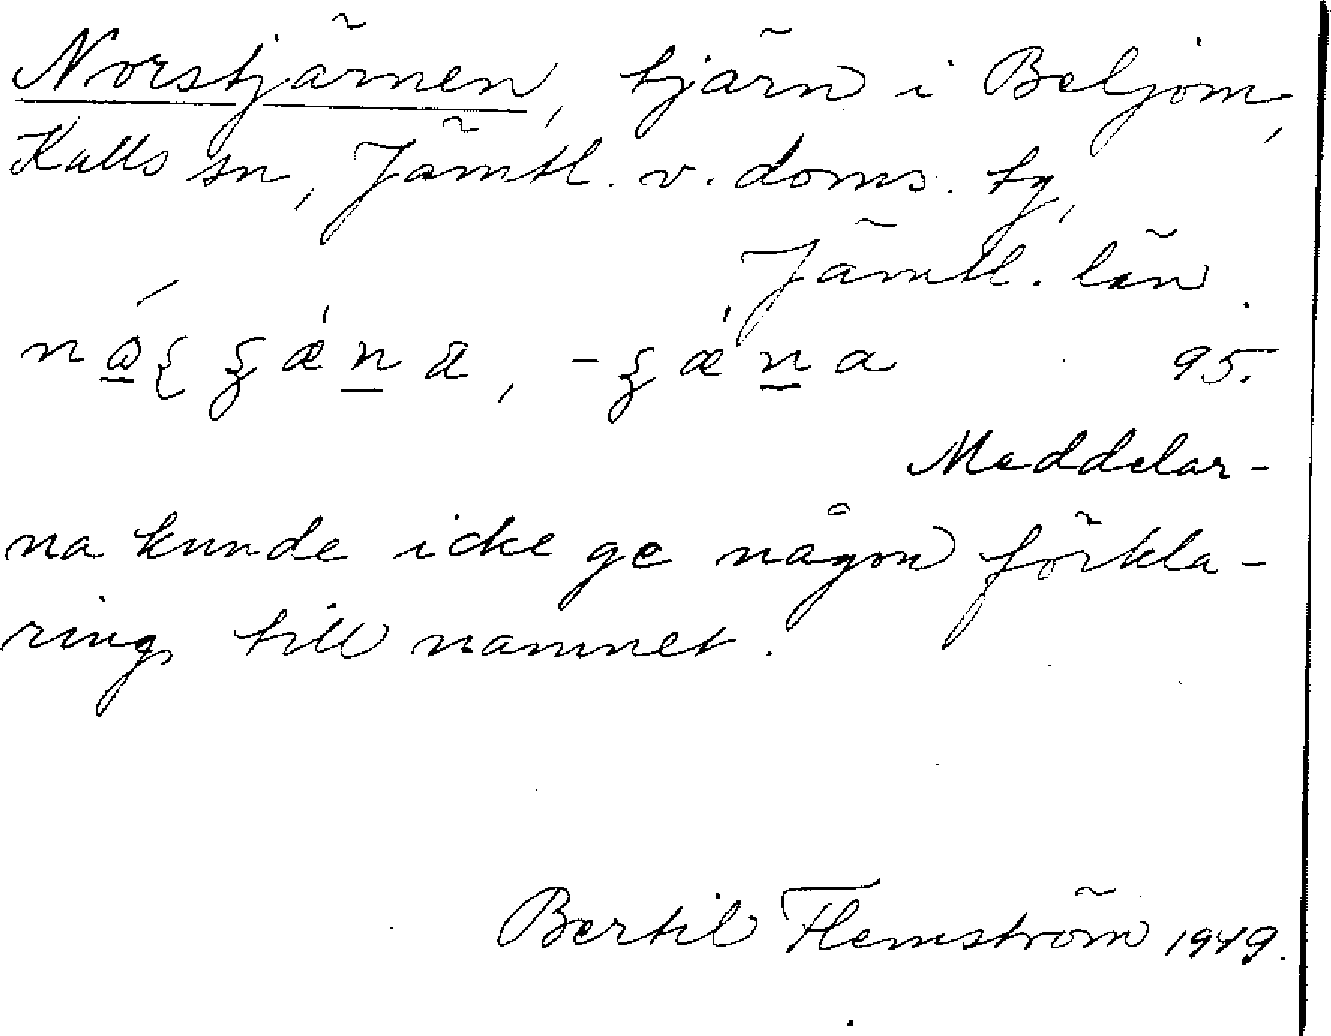 Norstjärnen, tjärn i Beljom,
Kalls sn, Jämtl. v. doms. tg,
Jämtl. län.
95.
Meddelar-
na kunde icke ge någon förkla-
ring till namnet.
Bertil Flemström 1949.